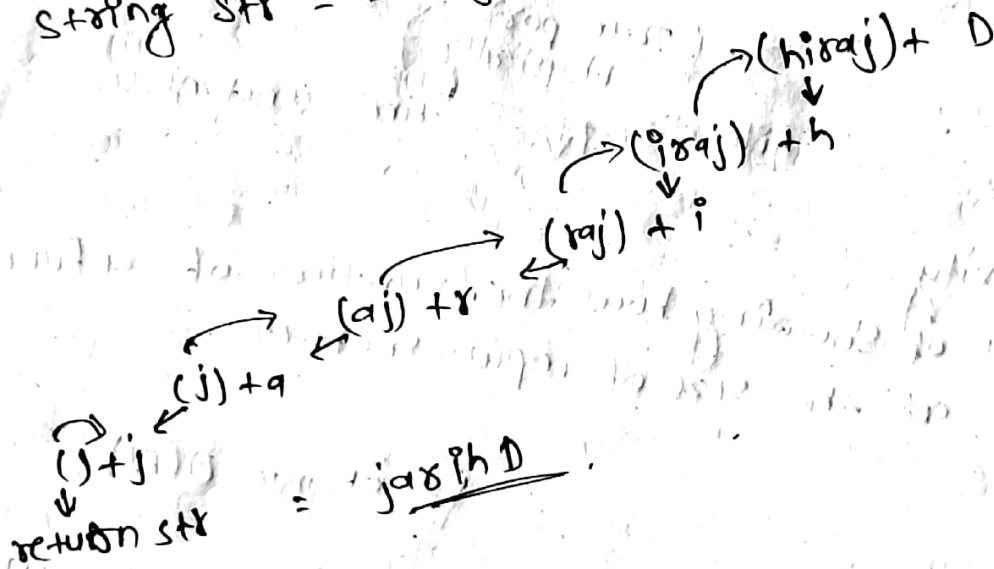 string str =
(hiraj) + D
(iraj) + h
(raj) + i
(aj) + r
(j) + a
() + j
return str = jarihD